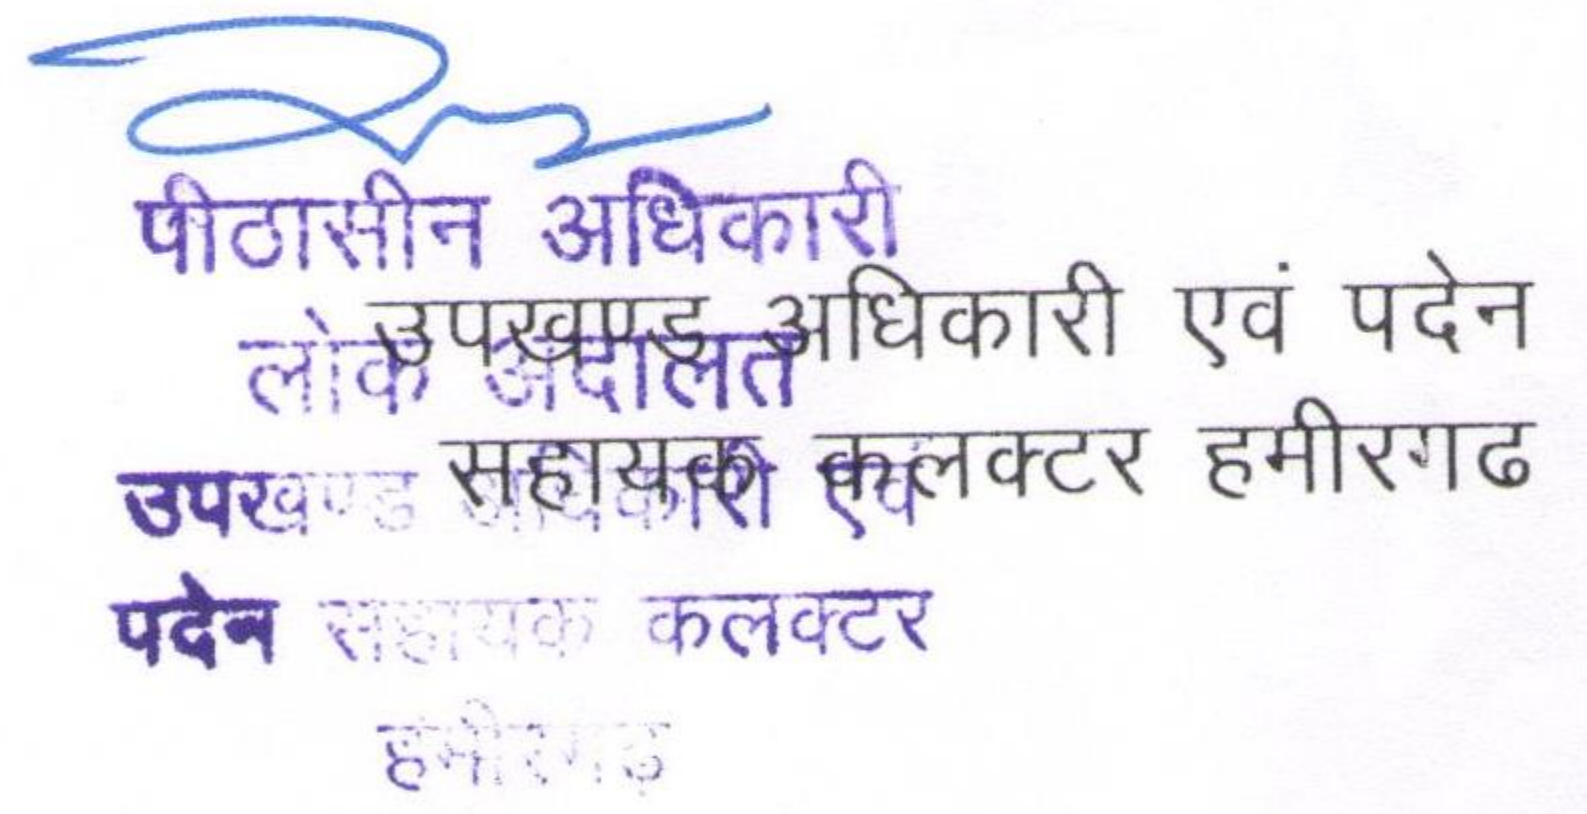 पीठासीन अधिकारी
उपखण्ड अधिकारी एवं पदेन
लोक अदालत
सहायक कलक्टर हमीरगढ
उपखण्ड अधिकारी एवं
पदेन सहायक कलक्टर
हमीरगढ़